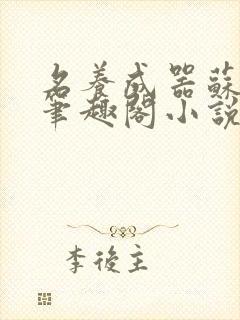 名養成器蘇
筆趣閣小說
李後主